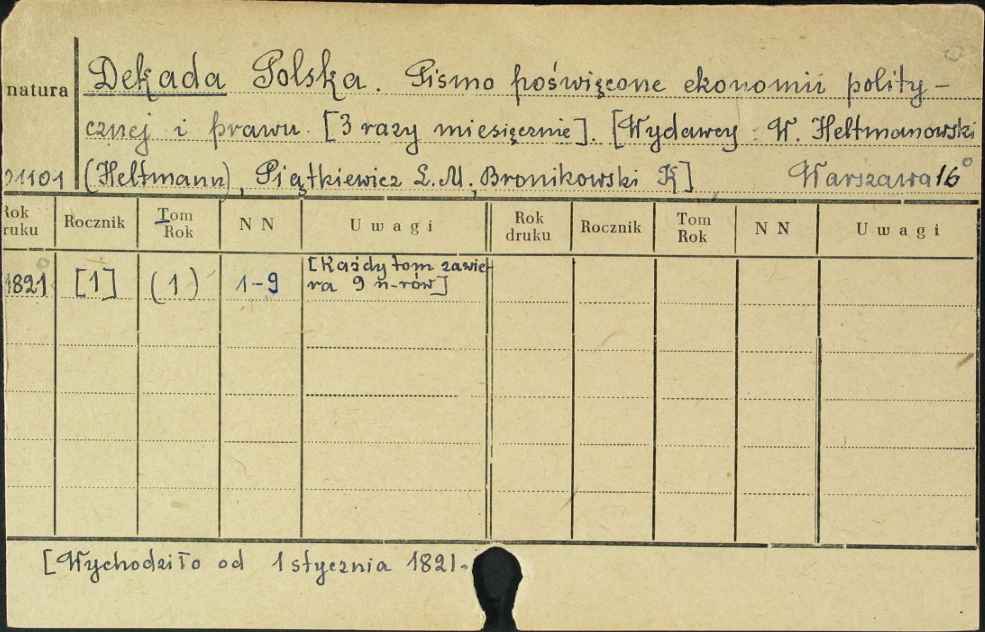 natura Dekada Polska. Pismo poświęcone ekonomii polity-
cznej i prawu. [3 razy miesięcznie]. [Wydawcy: W. Heltmanowski
1101 (Heltmann), Piątkiewicz L.M., Bronikowski K] Warszawa 16°
Rok druku Rocznik Tom Rok N N Uwagi Rok druku Rocznik Tom Rok N N Uwagi
1821 [1] (1) 1-9 [Każdy tom zawie-
ra 9 n-rów]
[Wychodziło od 1 stycznia 1821.